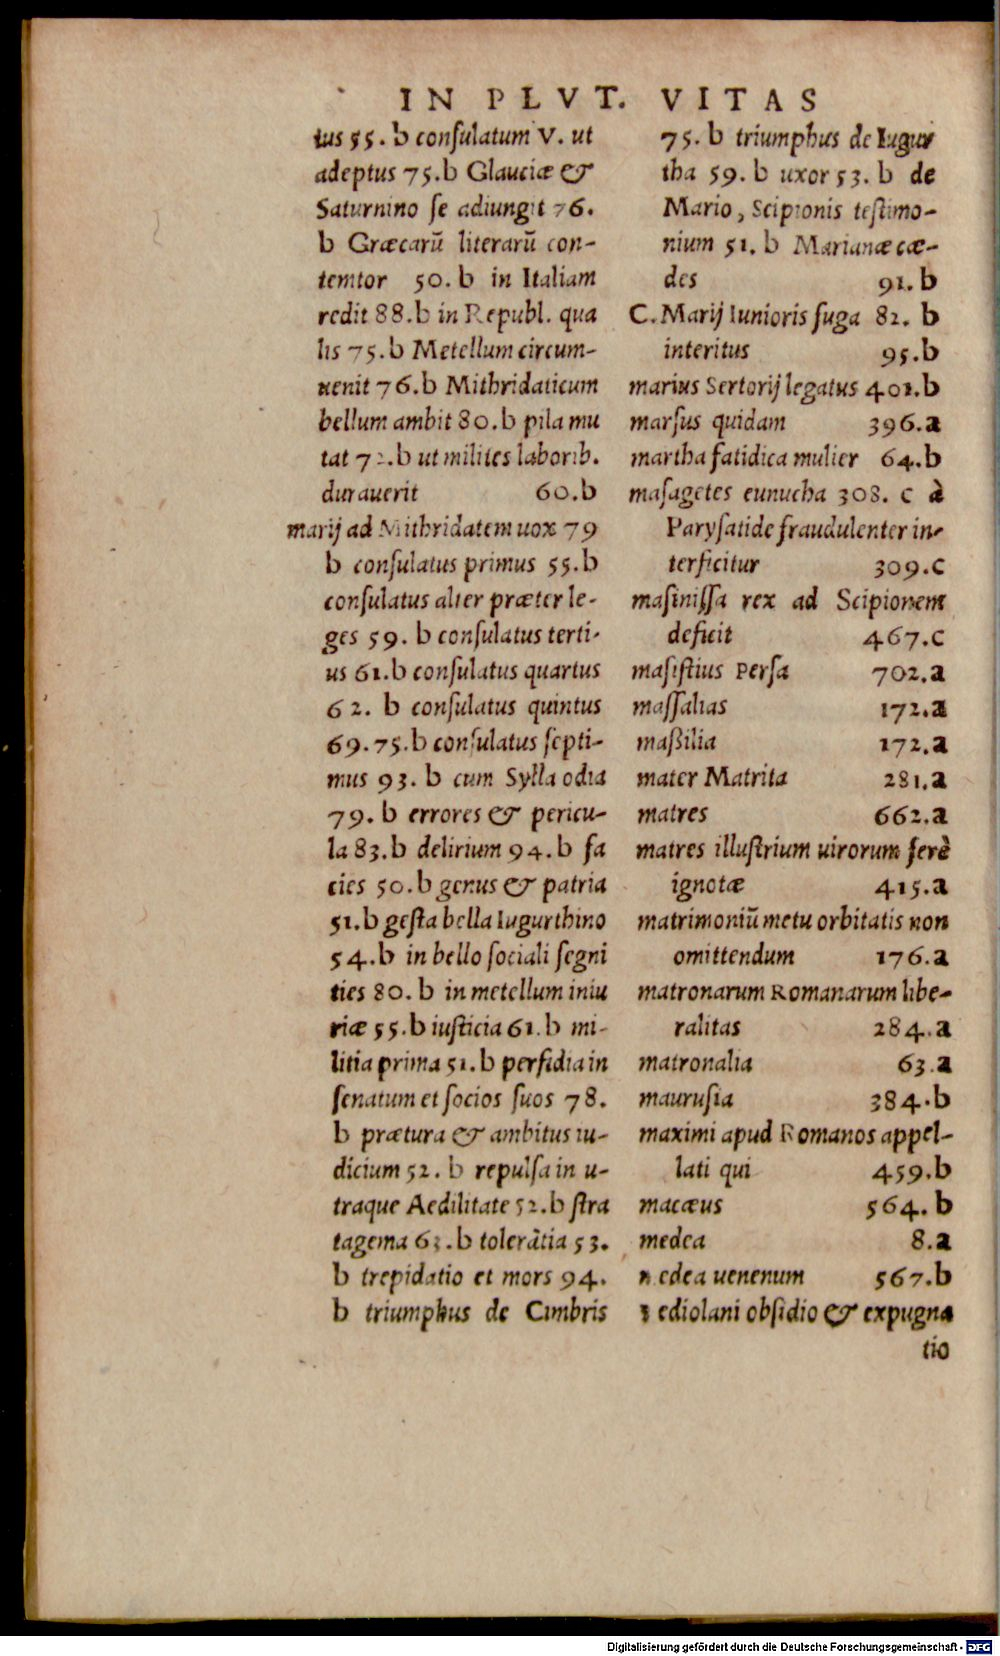 IN PLVT. VITAS
tus 55. b consulatum V. ut
adeptus 75.b Glauciæ &
Saturnino se adiungit 76.
b Græcarũ literarũ con-
temtor 50. b in Italiam
redit 88.b in Republ. qua
lis 75.b Metellum circum-
uenit 76.b Mithridaticum
bellum ambit 80.b pila mu
tat 72.b ut milites laborib.
durauerit 60.b
marij ad Mithridatem uox 79
b consulatus primus 55.b
consulatus alter præter le-
ges 59. b consulatus terti-
us 61.b consulatus quartus
62. b consulatus quintus
69.75.b consulatus septi-
mus 93. b cum Sylla odia
79. b errores & pericu-
la 83.b delirium 94.b fa
cies 50.b genus & patria
51.b gesta bella Iugurthino
54.b in bello sociali segni
ties 80. b in metellum iniu
riæ 55.b iusticia 61.b mi-
litia prima 51.b perfidia in
senatum et socios suos 78.
b prætura & ambitus iu-
dicium 52. b repulsa in u-
traque Aedilitate 52.b stra
tagema 63.b tolerãtia 53.
b trepidatio et mors 94.
b triumphus de Cimbris
75. b triumphus de Iugur
tha 59. b uxor 53. b de
Mario, Scipionis testimo-
nium 51. b Marianæ cæ-
des 91.b
C. Marij Iunioris fuga 82. b
interitus 95.b
marius Sertorij legatus 401.b
marsus quidam 396.a
martha fatidica mulier 64.b
masagetes eunucha 308. c à
Parysatide fraudulenter in-
terficitur 309.c
masinissa rex ad Scipionem
deficit 467.c
masistius Persa 702.a
massalias 172.a
maßilia 172.a
mater Matrita 281.a
matres 662.a
matres illustrium uirorum ferè
ignotæ 415.a
matrimoniũ metu orbitatis non
omittendum 176.a
matronarum Romanarum libe-
ralitas 284.a
matronalia 63.a
maurusia 384.b
maximi apud Romanos appel-
lati qui 459.b
macæus 564. b
medea 8.a
medea uenenum 567.b
mediolani obsidio & expugna
tio
Digitalisierung gefördert durch die Deutsche Forschungsgemeinschaft - DFG